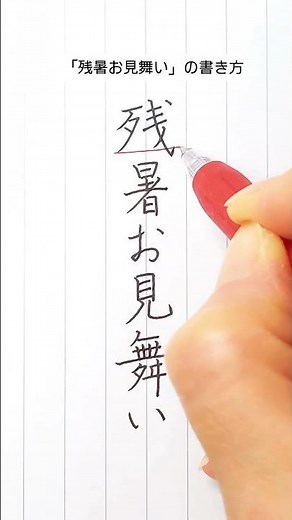 「残暑お見舞い」の書き方
残暑お見舞い